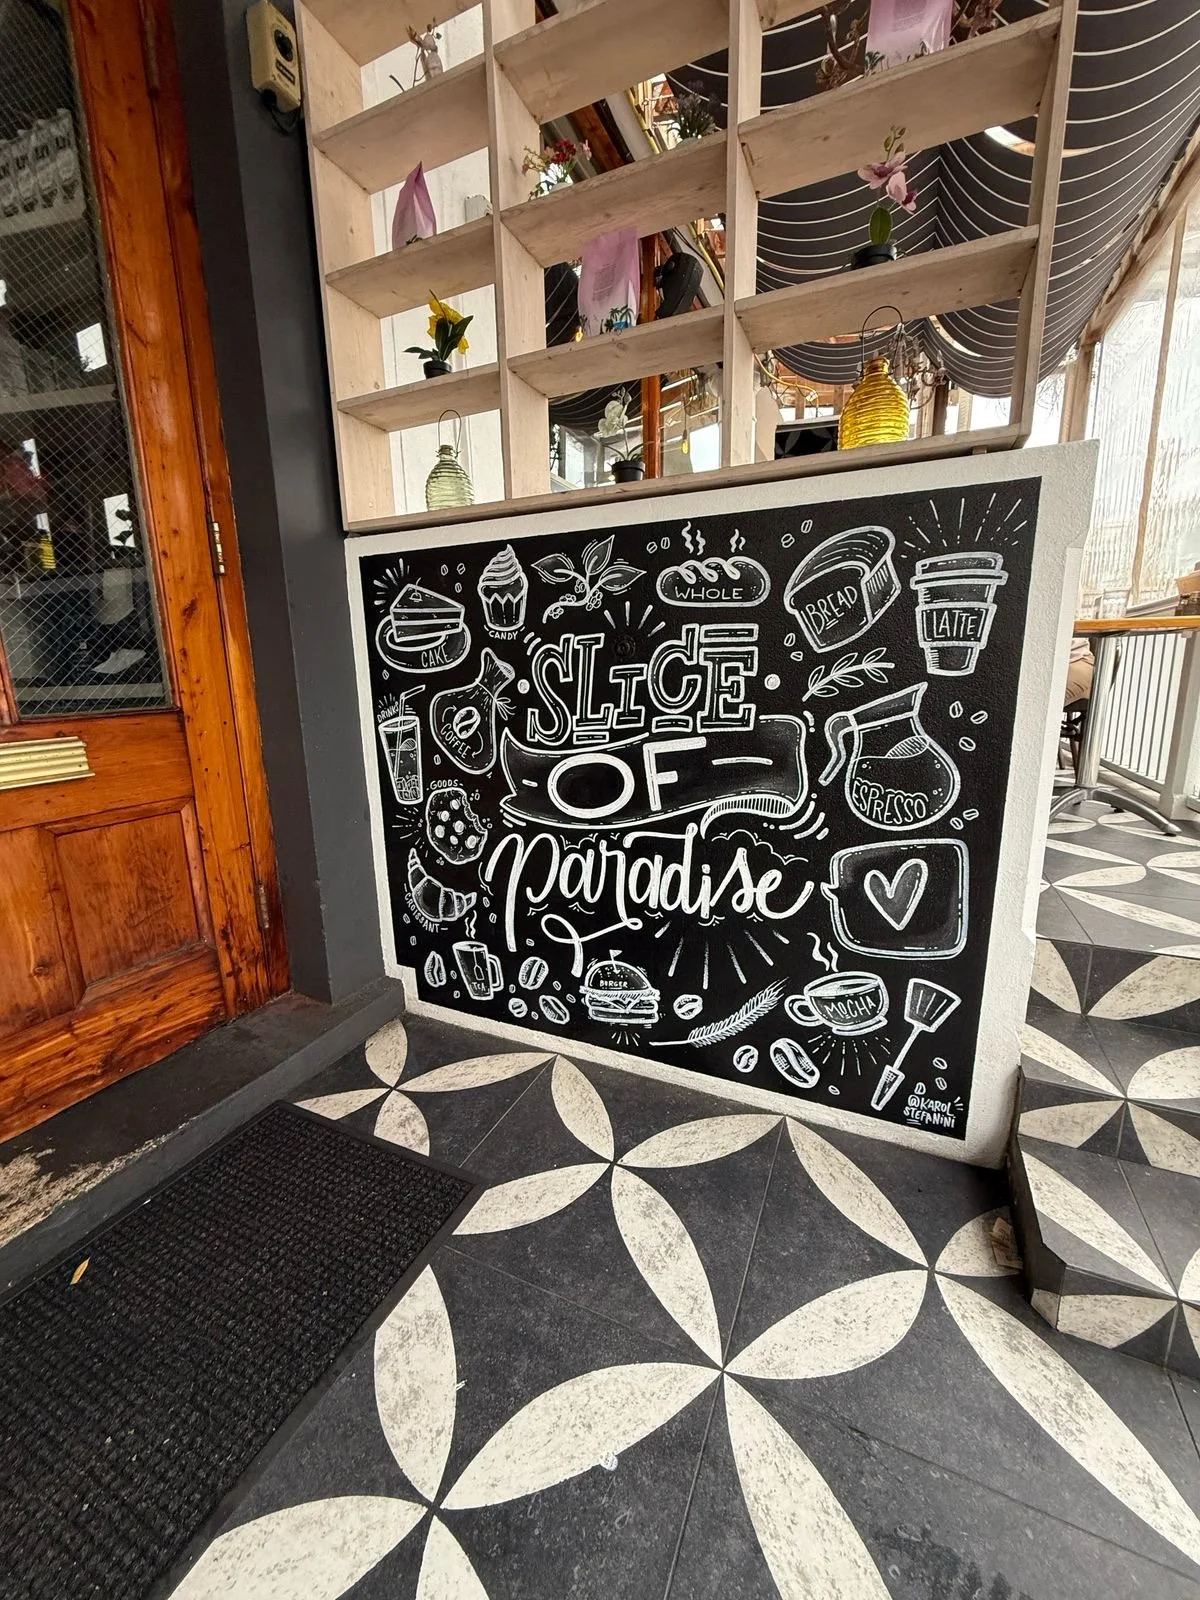 CAKE
CANDY
WHOLE
BREAD
LATTE
DRINKS
COFFEE
SLiCE
OF
Paradise
ESPRESSO
GOODS
CROISSANT
TEA
BURGER
MOCHA
@KAROL
STEFANINI